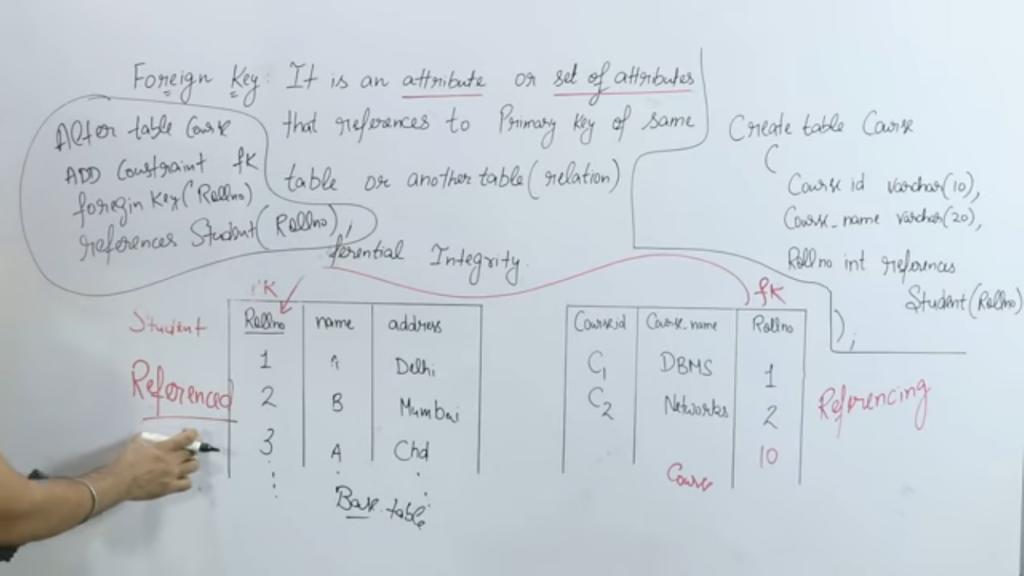 Foreign Key: It is an attribute or set of attributes
that references to Primary Key of same
table or another table (relation)
ferential Integrity.
Alter table Course
ADD Constraint fK
foregin Key (Rollno)
references Student (Rollno),
Create table Course
(
Course id varchar(10),
Course_name varchar(20),
Rollno int references
Student(Rollno)
);
Student
Referenced
Rollno name address
1 A Delhi
2 B Mumbai
3 A Chd
Base table
fK
Course id Course name Rollno
C1 DBMS 1
C2 Networks 2
10
Course
Referencing